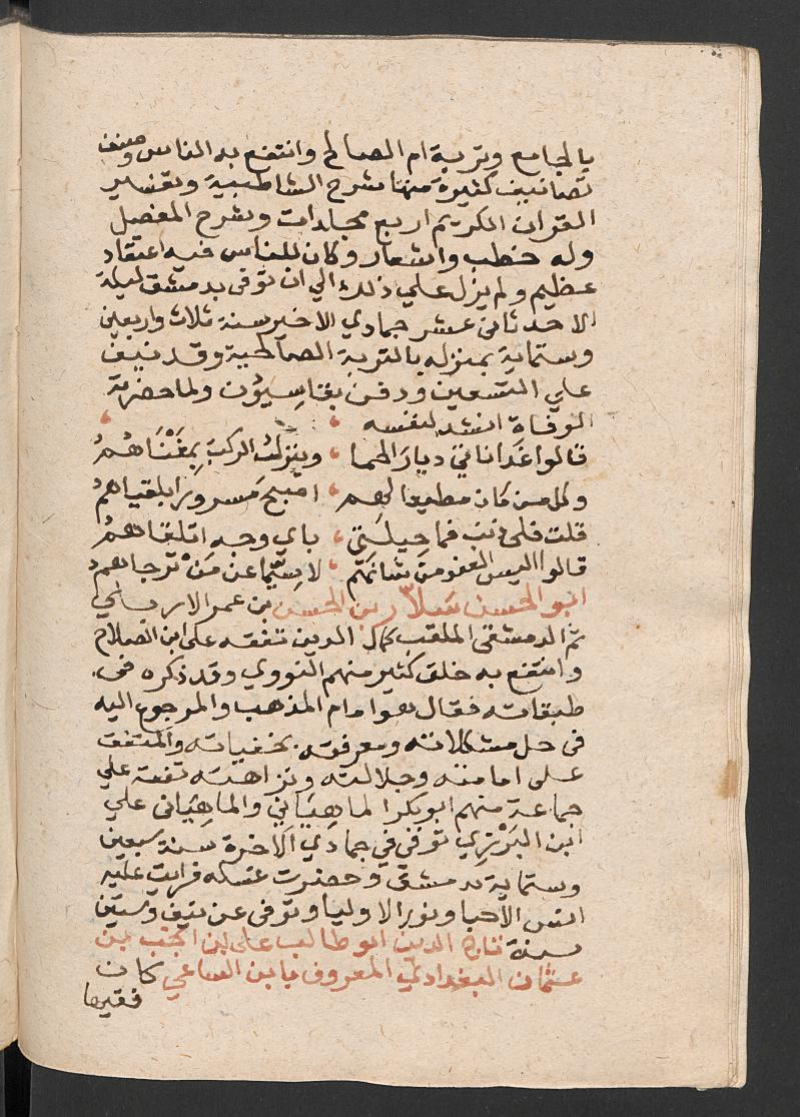 بالجامع وتربة ام الصالح وانتفع به الناس وصنف
تصانيف كثيرة منها شرح الشاطبية وتفسير
القران الكريم اربع مجلدات وشرح المفصل
وله خطب واشعار وكان للناس فيه اعتقاد
عظيم ولم يزل علي ذلك الي ان توفى بدمشق ليلة
الاحد ثانى عشر جمادي الاخير سنة ثلاث واربعين
وستماية بمنزله بالتربة الصالحية وقد نيف
علي التسعين ودفن بقاسيون ولما حضرته
الوفاة انشد لنفسه
قالوا غدا ناتي ديار الحما ، وينزل الركب بمغناهم
وكل من كان مطيعا لهم ، اصبح مسرورا بلقياهم
قلت فلى ذنب فما حيلتي ، باي وجه اتلقاهم
قالوا اليس العفو من شانهم ، لا سيما عن من ترجاهم
ابو الحسن سلار بن الحسن بن عمر الاربلي
ثم الدمشقى الملقب كمال الدين تفقه على ابن الصلاح
وانتفع به خلق كثير منهم النووي وقد ذكره فى
طبقاته فقال هو امام المذهب والمرجوع اليه
فى حل مشكلاته ومعرفة بخفياته والمتفق
على امامته وجلالته ونزاهته تفقه علي
جماعة منهم ابو بكر الماهياني والماهيانى علي
ابن البزري توفى في جمادي الاخرة سنة سبعين
وستماية بدمشق وحضرت غسله فرايت عليه
انس الاحبا ونور الاوليا وتوفى عن نيف وستين
سنة تاج الدين ابو طالب على بن انجب بن
عثمان البغدادي المعروف بابن الساعي كان
فقيها